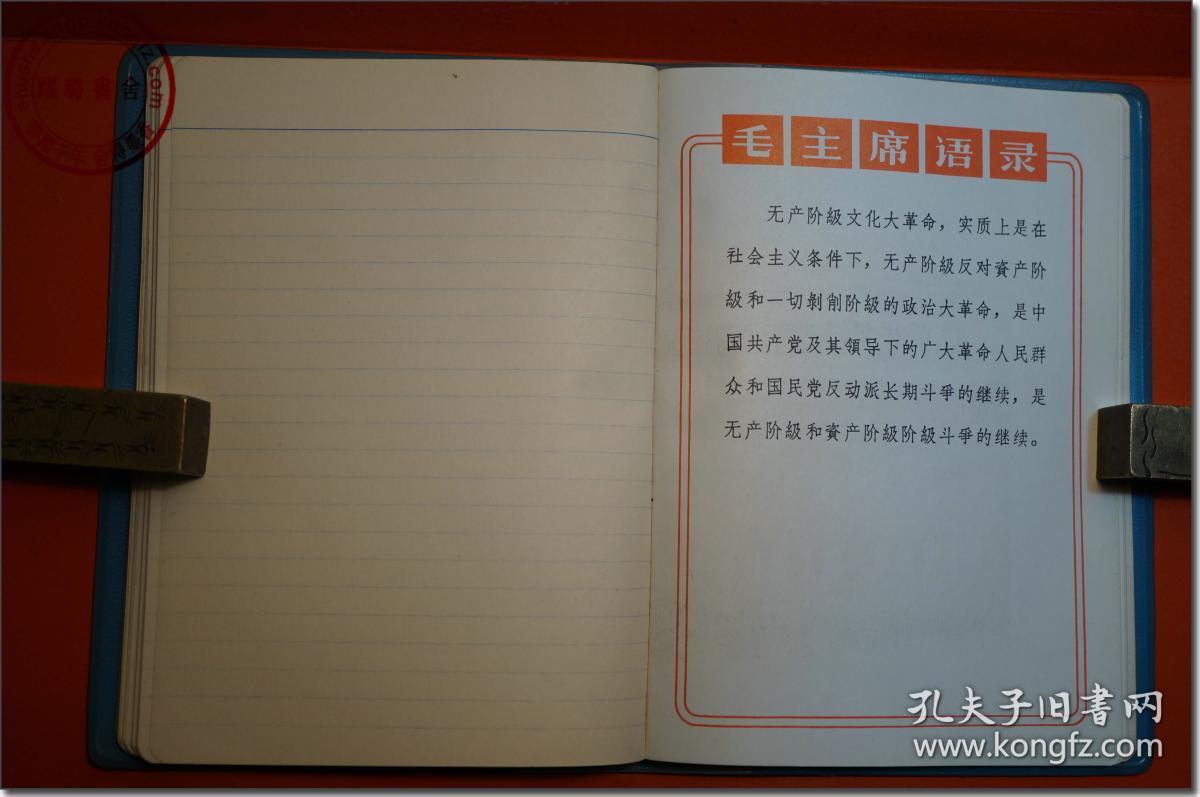 毛主席语录
无产阶級文化大革命，实质上是在
社会主义条件下，无产阶級反对資产阶
級和一切剝削阶級的政治大革命，是中
国共产党及其領导下的广大革命人民群
众和国民党反动派长期斗爭的继续，是
无产阶級和資产阶級阶級斗爭的继续。
孔夫子旧書网
www.kongfz.com